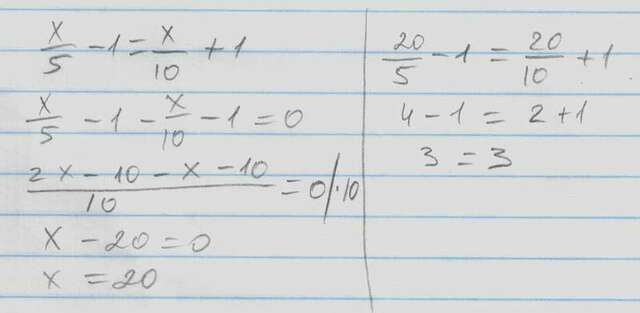 x/5 - 1 = x/10 + 1
x/5 - 1 - x/10 - 1 = 0
(2x - 10 - x - 10)/10 = 0 /·10
x - 20 = 0
x = 20
20/5 - 1 = 20/10 + 1
4 - 1 = 2 + 1
3 = 3